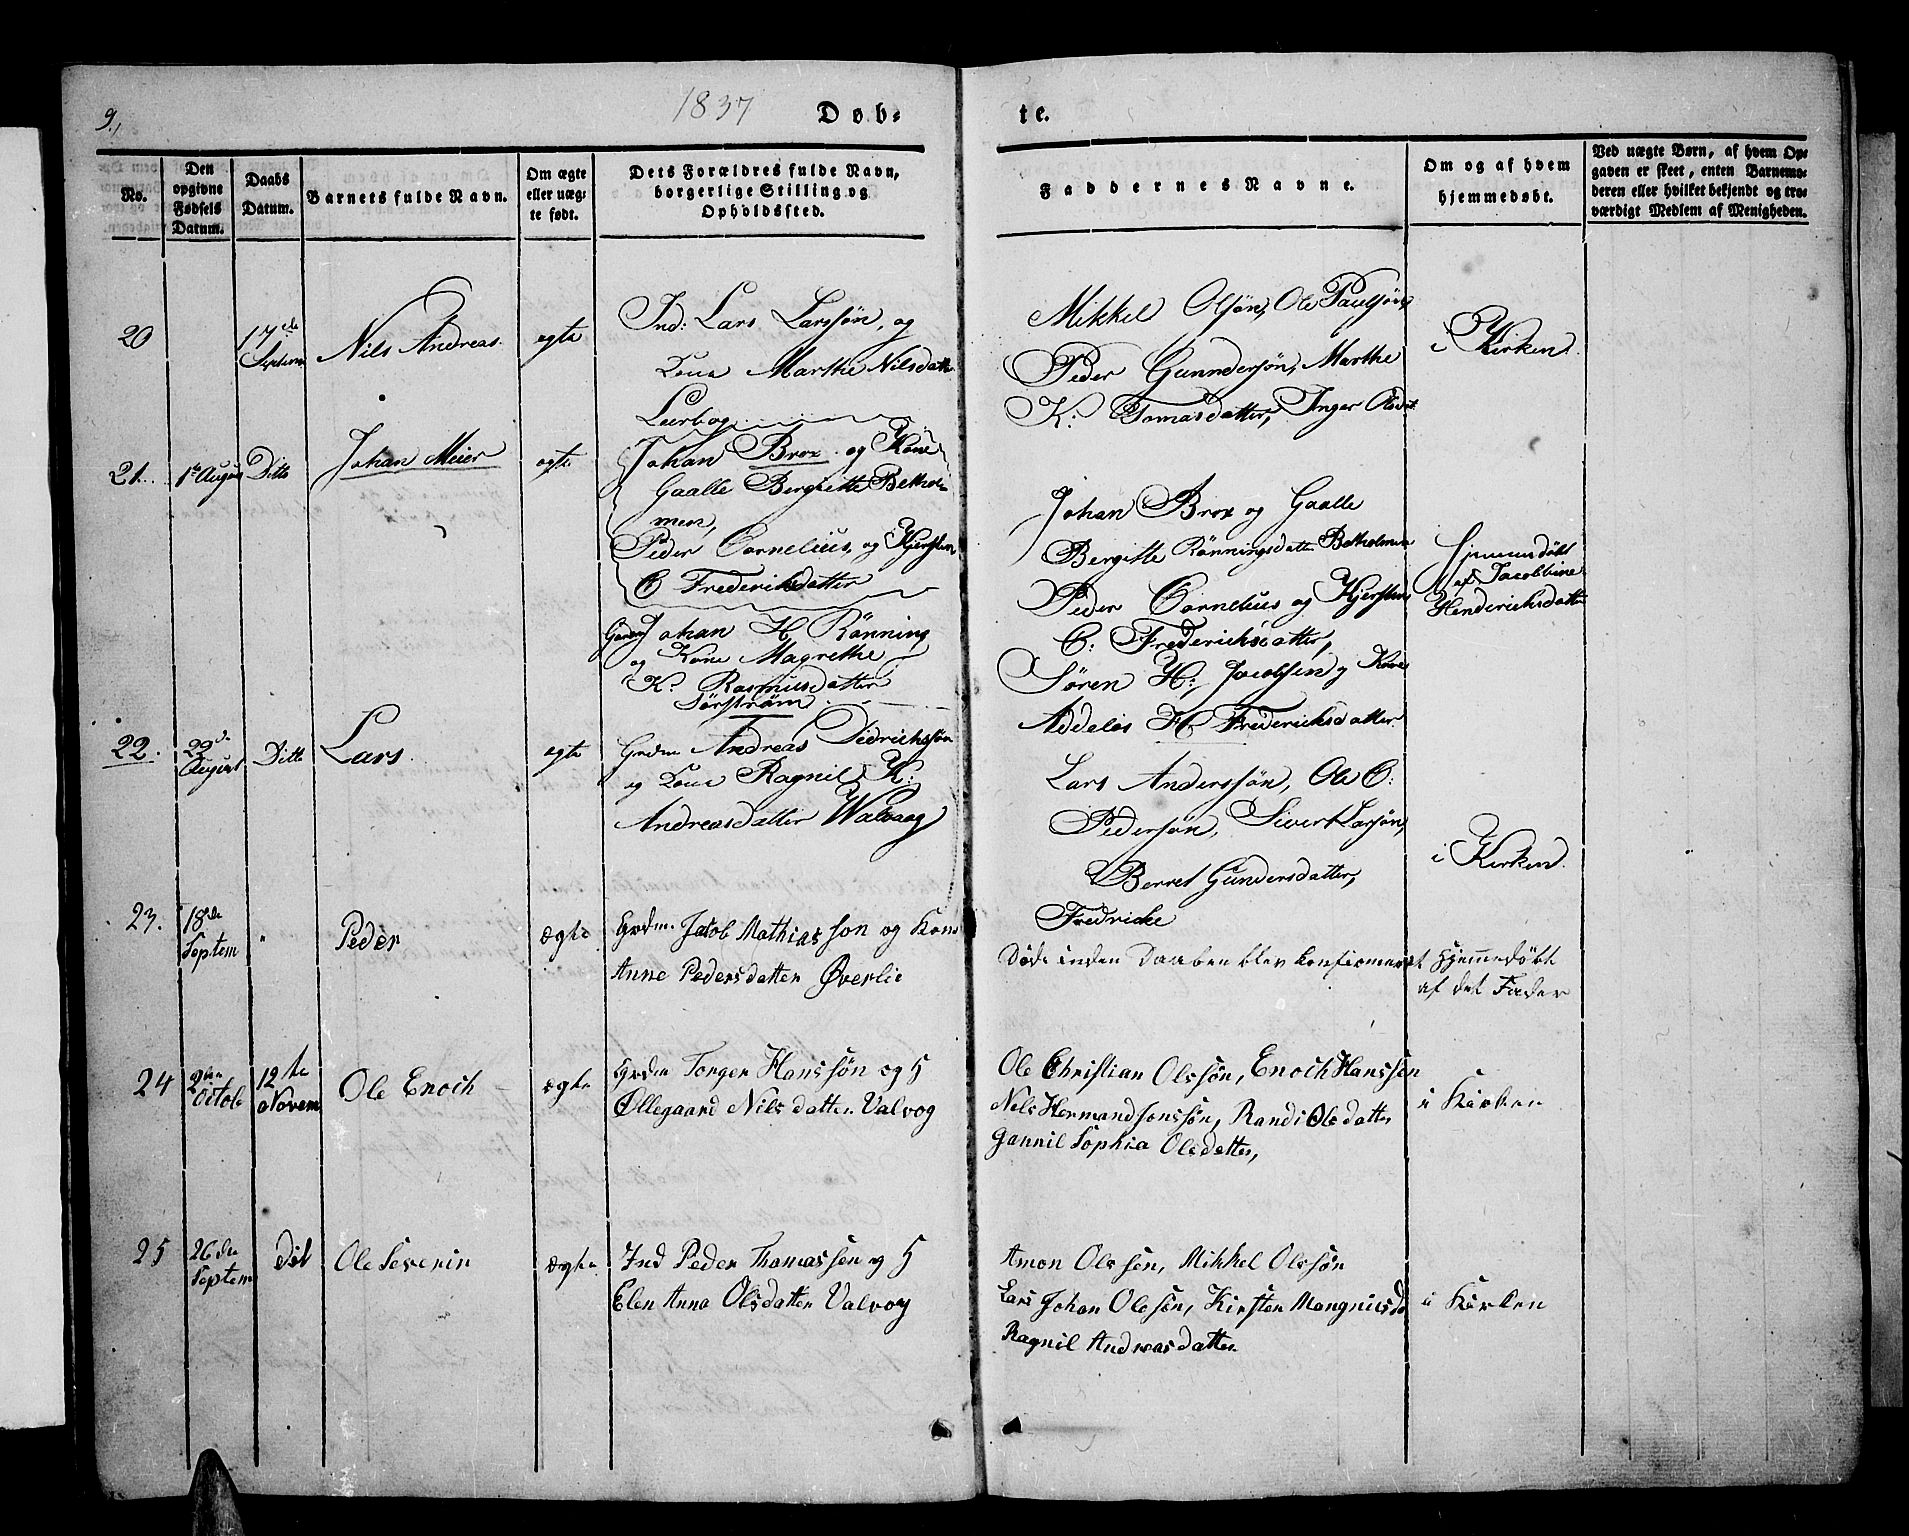 9.,
1837
Døb-
te.
No.
Den
opgivne
Fødsels
Datum.
Daabs
Datum.
Barnets fulde Navn.
Om ægte
eller uæg-
te født.
Dets Forældres fulde Navn,
borgerlige Stilling og
Opholdssted.
Faddernes Navne.
Om og af hvem
hjemmedøbt.
Ved uægte Børn, af hvem Op-
gaven er skeet, enten Barnemo-
deren eller hvilket bekjendt og tro-
værdigt Medlem af Menigheden.
20
17de
Septem
Nils Andreas
egte
Ind: Lars Larssøn, og
Kone Marthe Nilsdatt
Leerbog
Mikkel Olsøn, Ole Paulsøn,
Peder Gunndersøn, Marthe
K: Tomasdatter, Inger Olsdt
i Kirken.
21.
1te August
Ditto
Johan Meier
egte
Johan Brox og Kone
Gaalle Bergitte Bethol-
men,
Peder Cornelius, og Kjersten
C Frederiksdatter
Garm Johan H Rønning
og Kone Magrethe
K: Rasmusdatter
Sørstrøm
Johan Brox og Gaalle
Bergitte Rønningsdatt Betholmen
Peder Cornelius og Kjersten
C: Frederichsdatter,
Søren H: Jacobsen og Kone
Addelos H Frederichsdatter
Hjemmedøbt
af Jacobbine
Henderichsdatte
22.
22de
August
Ditto
Lars
egte
Grdm Andreas Didrichssøn
og Kone Ragnil K:
Andreasdatter Walvaag
Lars Anderssøn, Ole C:
Pedersøn, Sivert Larsøn,
Berret Gundersdatter,
Fredricke
i Kirken.
23.
18de
Septem
"
Peder
ægte
Grdm. Jacob Mathiassøn og Kone
Anne Pedersdatter Øverlie
Døde inden Daaben blev confirmeret
Hjemmedøbt
af det Fader
24
2den
Octob
12te
Novem
Ole Enoch
ægte
Grdm Torger Hanssøn og H
Øllegaard Nilsdatter Valvog
Ole Christian Olssøn, Enoch Hanssen
Nels Hermand Jonssøn, Randi Olsdatter
Gannil Sophia Olsdatter,
i Kirken
25
26de
Septem
Dit
Ole Severin
ægte
Ind Peder Thomassen og H
Elen Anna Olsdatter Valvog
Amon Olssen, Mikkel Olssøn
Lars Johan Olssøn, Kirsten Mangnusd
Ragnil Andreasdatter
i Kirken